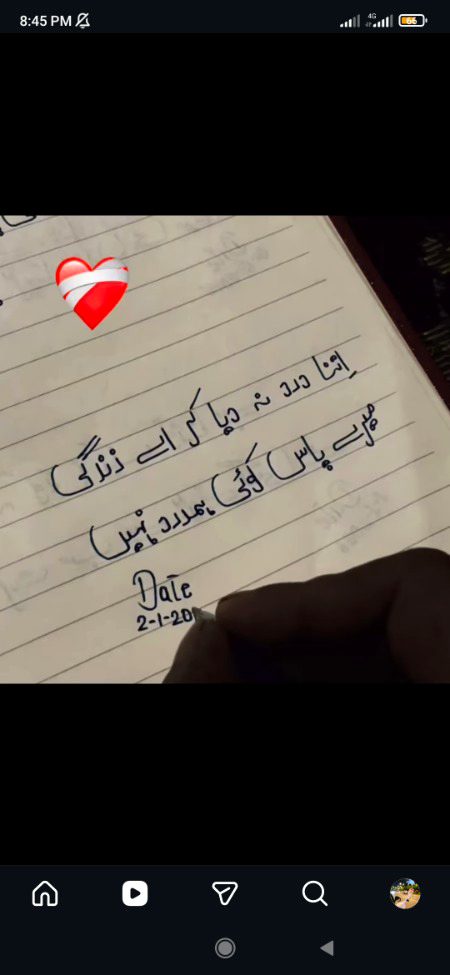 8:45 PM
4G
66
اتنا درد نہ دیا کر اے زندگی
میرے پاس کوئی ہمدرد نہیں
Date
2-1-20